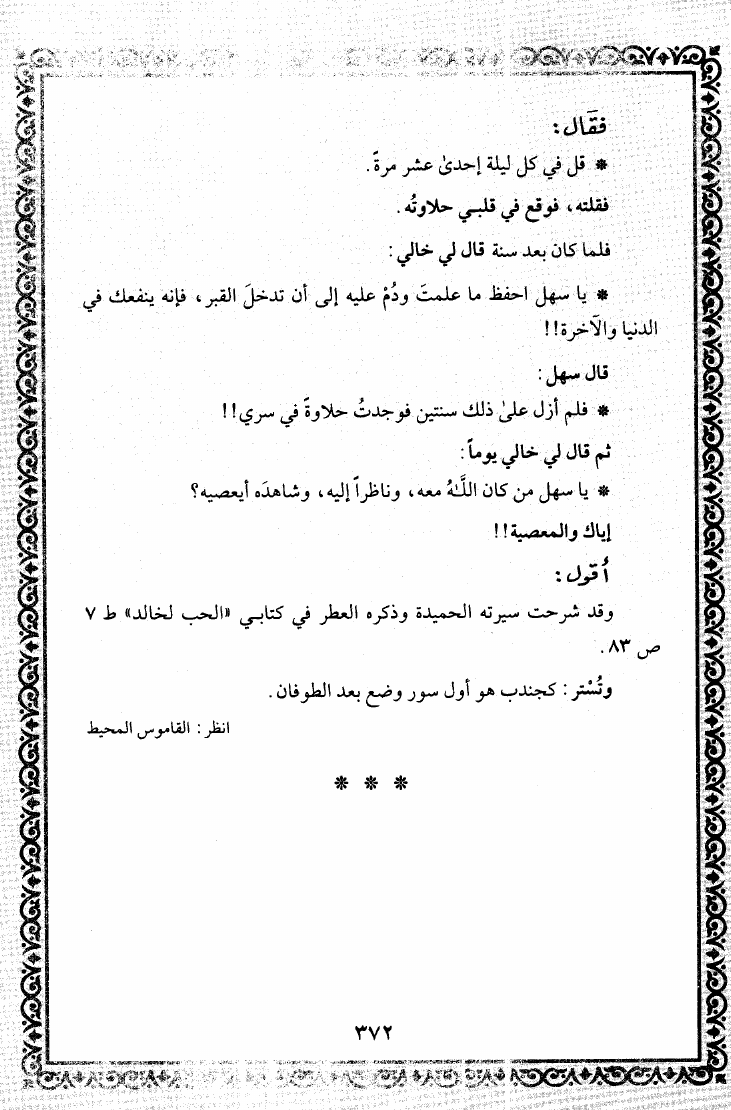 فقَال:
* قل في كل ليلة إحدىٰ عشر مرةً.
فقلته، فوقع في قلبي حلاوتُه.
فلما كان بعد سنة قال لي خالي:
* يا سهل احفظ ما علمتَ ودُمْ عليه إلى أن تدخلَ القبر، فإنه ينفعك في
الدنيا والآخرة!!
قال سهل:
* فلم أزل علىٰ ذلك سنتين فوجدتُ حلاوةً في سري!!
ثم قال لي خالي يوماً:
* يا سهل من كان اللَّـهُ معه، وناظراً إليه، وشاهدَه أيعصيه؟
إياك والمعصية!!
أقول:
وقد شرحت سيرته الحميدة وذكره العطر في كتابي «الحب لخالد» ط ٧
ص ٨٣.
وتُسْتر: كجندب هو أول سور وضع بعد الطوفان.
انظر: القاموس المحيط
* * *
٣٧٢